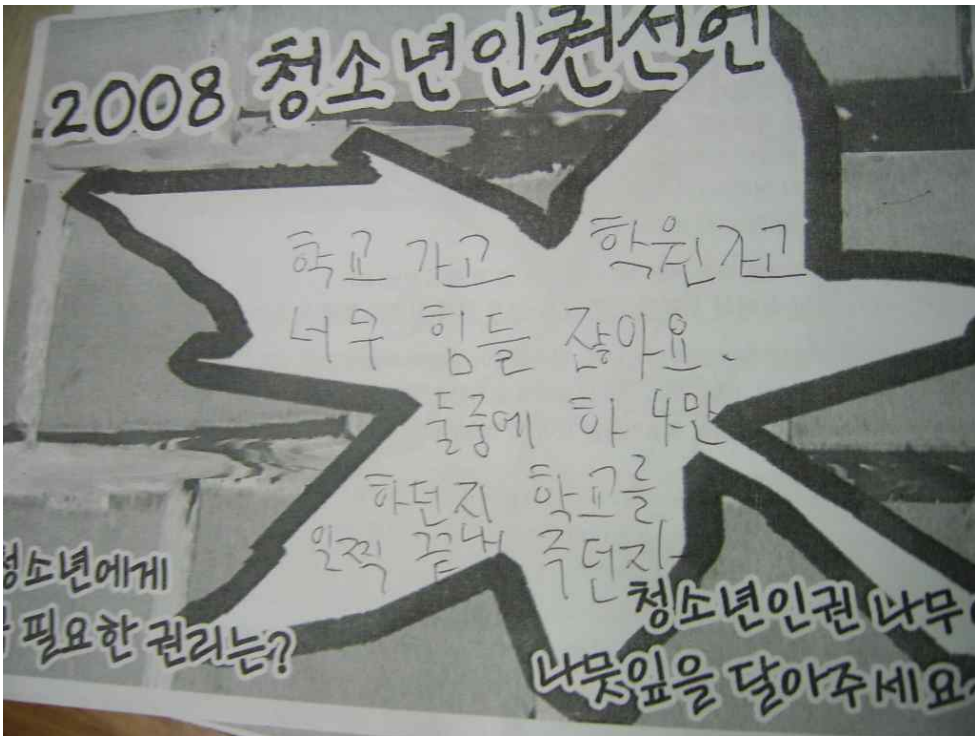 2008 청소년인권선언
학교 가고 학원가고
너무 힘들 잖아요.
둘중에 하나만
하던지 학교를
일찍 끝내 주던지-
청소년에게
필요한 권리는?
청소년인권 나무
나뭇잎을 달아주세요